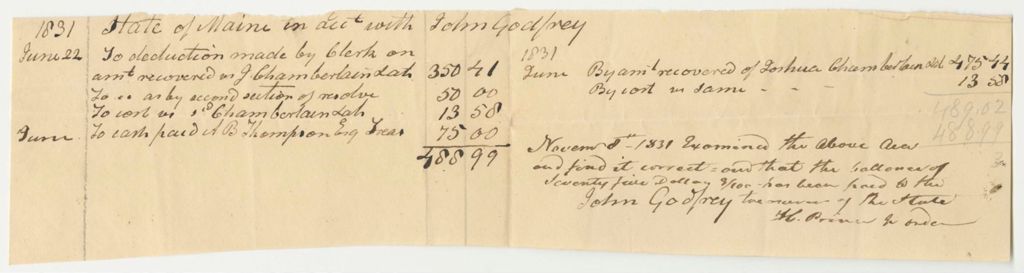 1831 State of Maine in acct with John Godfrey
June 22 To deduction made by Clerk on
amt recovered vs J Chamberlain Late 350 41
To so as by second section of resolve 50 00
To cost vs sd Chamberlain Late 13 58
June To cash paid A B Thompson Esq Treas 75 00
488 99
1831
June By amt recovered of Joshua Chamberlain Late 475 44
By cost vs same - - - 13 58
489.02
488 99
3
Novem 8th 1831 Examined the Above
and find it correct - and that the ballance of
Seventy five Dollars 3/100 has been paid to the
John Godfrey treasurer of the State
H. Prince